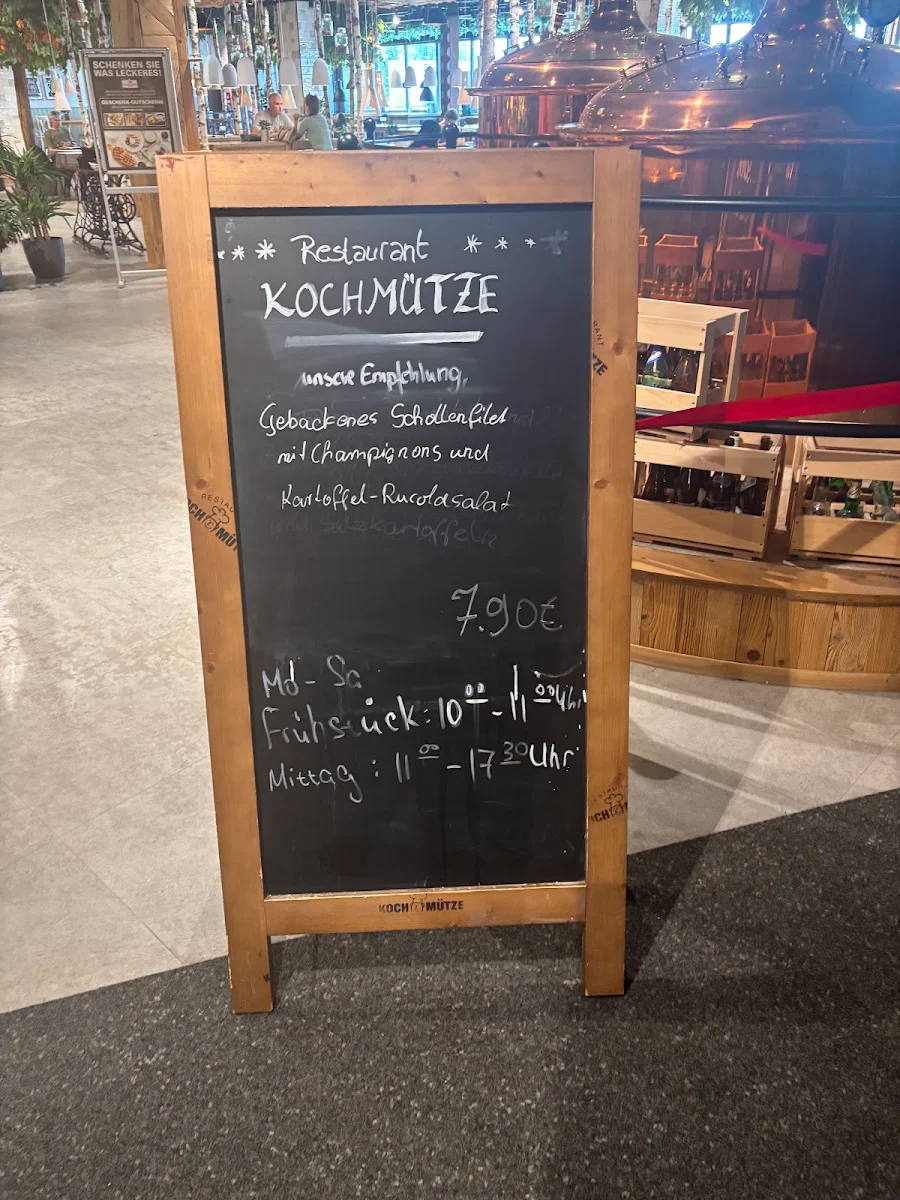 SCHENKEN SIE
WAS LECKERES!
GESCHENK-GUTSCHEINE
Restaurant
KOCHMÜTZE
unsere Empfehlung,
Gebackenes Schollenfilet
mit Champignons und
Kartoffel-Rucolasalat
und Salzkartoffeln
7.90€
Mo - Sa
Frühstück: 10 00 - 11 00 Uhr
Mittag : 11 00 - 17 30 Uhr
KOCH MÜTZE